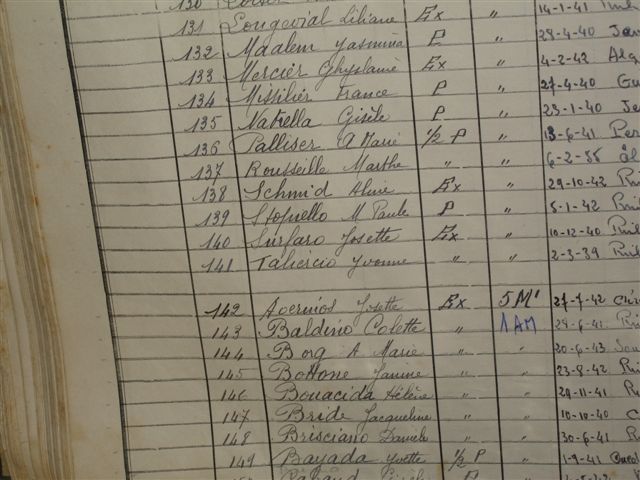 130
131 Songevial Liliane Ex " 14-1-41
132 Maalem Yasmina P " 28-4-40 Jan
133 Mercier Ghyslanie Ex " 4-2-42 Alg
134 Missilier France P " 27-4-40 Gu
135 Natiella Gisèle P " 23-1-40 Jan
136 Palliser A Marie 1/2 P " 13-6-41 Per
137 Rousseille Marthe " " 6-2-35 Al
138 Schmid Aline Ex " 29-10-42
139 Stopiello M Paule P " 5-1-42
140 Surfaro Josette Ex " 10-12-40
141 Taliercio Yvonne " " 2-3-39
142 Avermos Josette Ex 5M' 27-7-42
143 Baldino Colette " 1AM 29-6-41
144 Borg A Marie " " 20-6-43
145 Bottone Janine " " 23-8-42
146 Bonacida Hélène " " 29-11-41
147 Bride Jacqueline " " 10-10-40
148 Brisciano Daniele " " 30-6-41
149 Bayada Yvette 1/2 P " 1-9-41